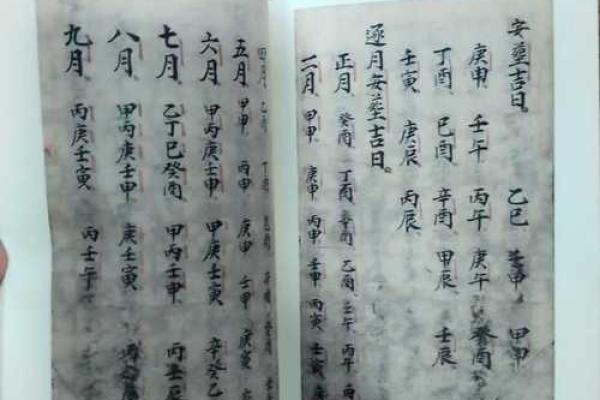 安葬吉日。 乙巳 壬申 甲申
庚申 壬午 丙午 庚午 癸酉
丁酉 己酉 辛酉 甲辰 壬辰
壬寅 庚辰 丙辰
逐月安葬吉日。
正月 癸酉 丁酉 辛酉 乙酉 壬午 丙午
二月 甲申 庚申 丙申 壬申 丙寅 壬寅
四月
五月 甲申 丙申 庚申 壬申 庚寅
六月 甲丙庚壬申 甲庚壬寅 辛癸乙
七月 乙丁巳癸酉 甲丙壬申 丙壬辰
八月 甲丙庚壬申 庚壬寅
九月 丙庚壬寅 丙壬午